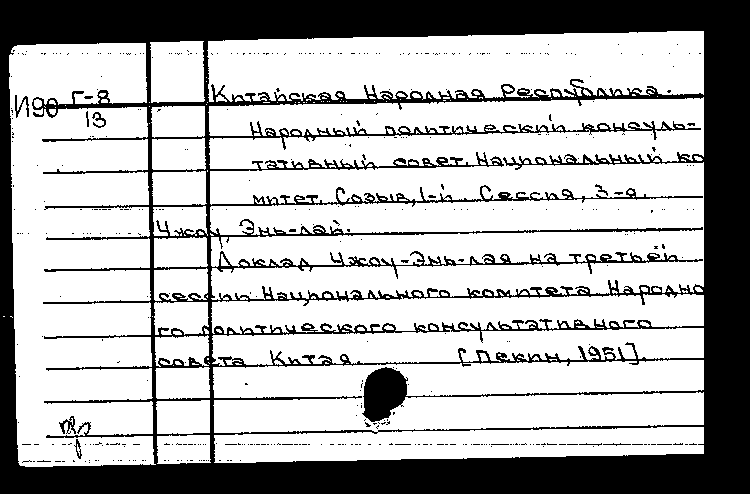 И90 Г-8
13
Китайская Народная Республика.
Народный политический консуль-
тативный совет. Национальный ко
митет. Созыв, 1-й. Сессия, 3-я.
Чжоу, Энь-лай.
Доклад Чжоу-Энь-лая на третьей
сессии Национального комитета Народно
го политического консультативного
совета Китая. [Пекин, 1951].